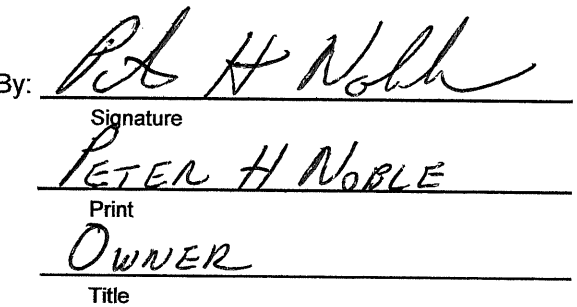 By: Pet H Noble
Signature
PETER H NOBLE
Print
OWNER
Title